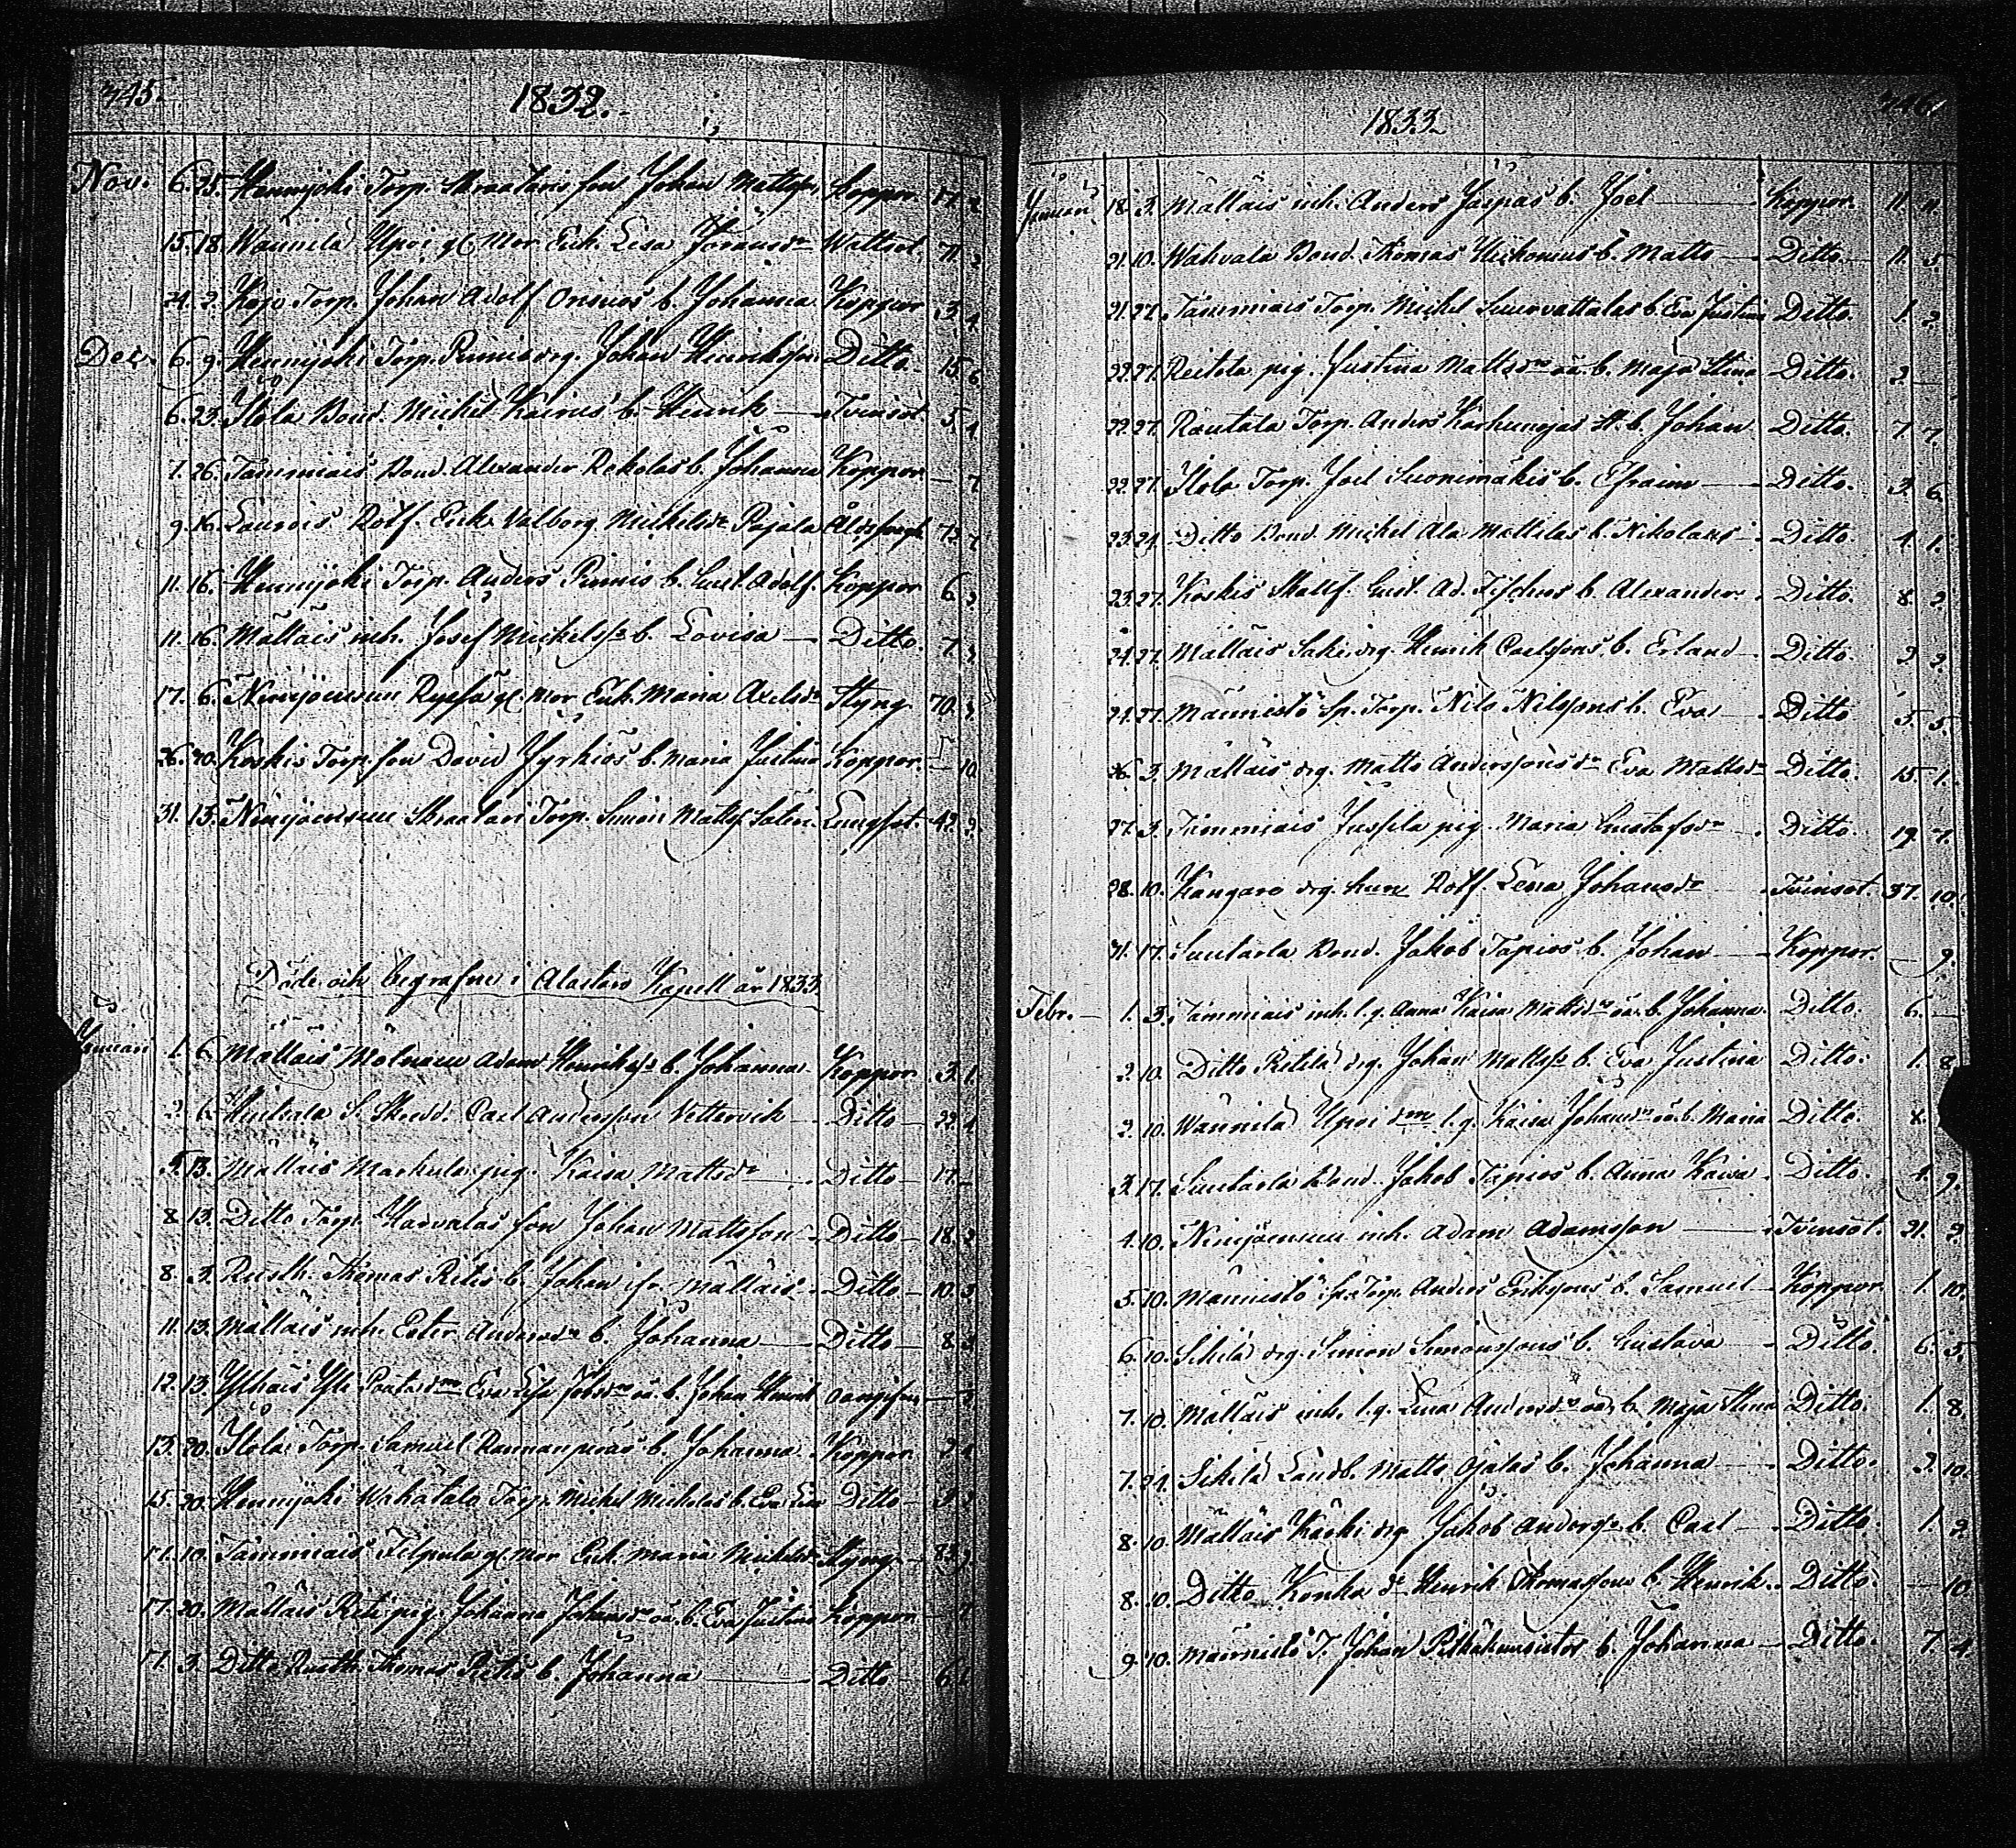 345.
1832.
Nov. 6. 25. Hennijoki Torp. Skraataris son Johan Mattsson Koppor. 17. 2.
15. 18. Wännilä Upoi gl. Mor Enk. Lisa Jöransdr Wattsot. 71. 2.
24. 2. Kojo Torp. Johan Adolf Orenos b. Johanna Koppor 3. 4.
Dec. 6. 9. Hennijoki Torp. Pinnis drg. Johan Henriksson Ditto. 15. 6.
6. 23. Ilola Bond. Michel Kairus b. Henrik Tvinsot 5. 4.
7. 26. Tammiais Bond. Alexander Rekolas b. Johanna Koppor. 7.
9. 16. Laurois Rotf. Enk. Valborg Michelsdr Pajala Ålders. 75. 7.
11. 16. Hennijoki Torp. Anders Pinnis b. Gust. Adolf. Koppor 6. 3.
11. 16. Mällais inh. Josef Michelss. b. Lovisa Ditto. 7. 3.
17. 6. Niinijoensuu gl. Mor Enk. Maria Axelsdr Styng 70. 3.
26. 30. Koskis Torp. son David Yrkiös b. Maria Justina Koppor. 10.
31. 13. Niinijoensuu Skraatari Torp. Simon Matts. Lungsot. 42. 9.
Döde och begrafne i Alastaro Kapell år 1833.
Januari 1. 6. Mällais Adam Henrikss. b. Johanna Koppor. 3. 1.
2. 6. S. Carl Andersson Vettervik Ditto 22. 4.
5. 13. Mällais Markula pig. Kaisa Mattsdr Ditto 17.
8. 13. Ditto Torp. Harvalas son Johan Mattsson Ditto 18. 2.
8. 3. Rusth. Thomas Ritis b. Johan ifr. Mällais Ditto 10. 3.
11. 13. Mällais inh. Ester Andersdr b. Johanna Ditto 8. 3.
12. 13. Eva Lisa Jobsdrs oä. b. Johan Henrik
13. 20. Ilola Torp. Samuel b. Johanna Koppor. 2. 4.
15. 20. Hennijoki Wahatalo Torp. Michel Mickolas b. Eva Lisa Ditto 3. 2.
17. 10. Tammiais Filpula gl. Mor Enk. Maria Michelsdr Styng 83.
17. 20. Mällais Riti pig. Johanna Johansdrs oä. b. Eva Justina Koppor.
17. 3. Ditto Rusth. Thomas Ritis b. Johanna Ditto 6.
346.
1833.
Januari 18. 3. Mällais inh. Anders Jaspas b. Joel Koppor. 11. 11.
21. 10. Wahvala Bond. Thomas Uckonius b. Matts Ditto 11. 5.
21. 27. Tammiais Torp. Michel b. Eva Justina Ditto. 1. 2.
22. 27. Reitola pig. Justina Mattsdrs oä. b. Maja Stina Ditto. 2.
22. 27. Rautala Torp. Anders Karhunojas b. Johan Ditto. 7. 7.
22. 27. Ilola Torp. Joel Suonimäkis b. Efraim Ditto. 3. 6.
23. 24. Ditto Bond. Michel Ala Mattilas b. Nikolaus Ditto. 4. 1.
23. 27. Koskis Skallf. Gust. Ad. Tischers b. Alexander Ditto. 8. 2.
24. 27. Mällais Saki drg. Henrik Carlssons b. Erland Ditto. 2. 2.
24. 27. Männistö Sp. Torp. Nils Nilssons b. Eva Ditto 5. 5.
26. 3. Mällais drg. Matts Anderssons dr Eva Mattsdr Ditto. 15. 1.
27. 3. Tammiais Jussila pig. Maria Gustafsdr Ditto. 19. 7.
28. 10. Kangare drg. Rotf. Lena Johansdr Tvinsot. 37. 10.
31. 17. Suutarla Bond. Jakob Tapios b. Johan Koppor. 9.
Febr. 1. 3. Tammiais inh. l. q. Anna Kaisa Mattsdrs oä. b. Johanna. Ditto. 6.
2. 10. Ditto Ritilä drg. Johan Mattss. b. Eva Justina Ditto. 1. 8.
2. 10. Wännilä Upoi l. q. Kaisa Johansdrs oä. b. Maria Ditto. 8.
3. 17. Suutarla Bond. Jakob Tapios b. Anna Kaisa Ditto. 4. 9.
4. 10. Niinijoensuu inh. Adam Adamsson Tvinsot. 21. 9.
5. 10. Männistö Sp. Torp. Anders Erikssons b. Samuel Koppor. 1. 10.
6. 10. Sikilä drg. Simon Simonssons b. Gustava Ditto. 6. 5.
7. 10. Mällais inh. l. q. Lena Andersdrs oä. b. Maja Stina Ditto. 1. 8.
7. 24. Sikilä Landb. Matts Ojalas b. Johanna Ditto. 2. 10.
8. 10. Mällais Kärki drg. Jakob Anderss. b. Carl Ditto. 1. 2.
8. 10. Ditto Konka dr Henrik Thomassons b. Henrik Ditto. 10.
9. 10. Männistö T. Johan b. Johanna Ditto. 7. 4.